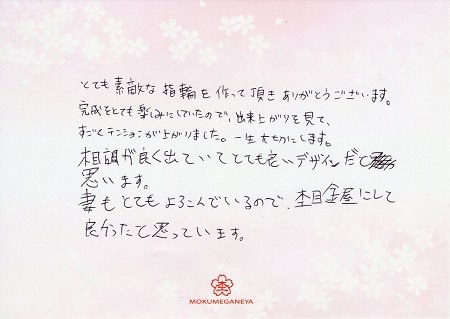 とても素敵な指輪を作って頂きありがとうございます。
完成をとても楽しみにしていたので、出来上がりを見て、
すごくテンションが上がりました。一生大切にします。
相調が良く出ていてとても良いデザインだと
思います。
妻もとてもよろこんでいるので、杢目金屋にして
良かったと思っています。
杢
MOKUMEGANEYA